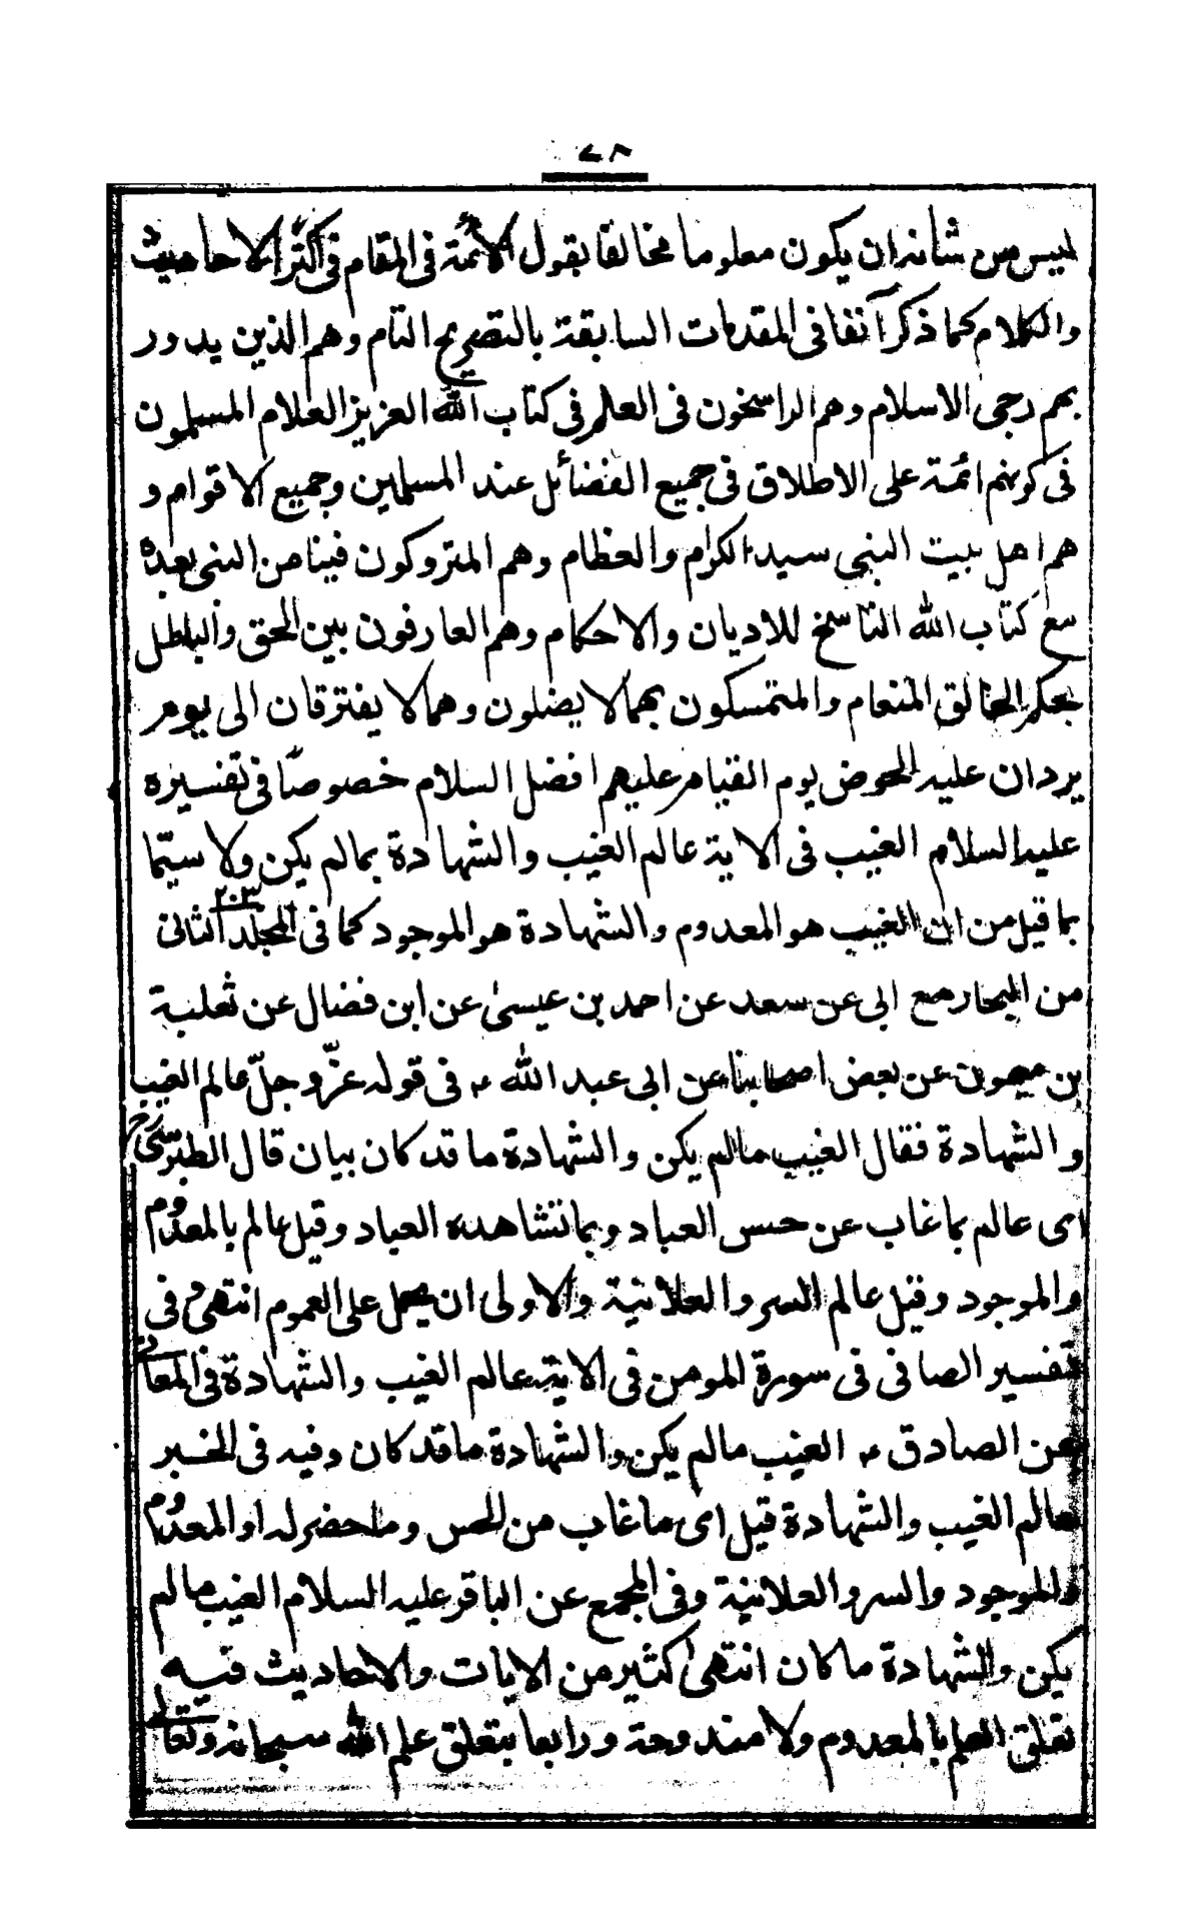 ٧٨
ليس من شأنه ان يكون معلوما مخالفا بقول الائمة فى المقام فى اكثر الاحاديث
والكلام كما ذكر آنفا فى المقدمات السابقة بالتصريح التام وهم الذين يدور
بهم رحى الاسلام وهم الراسخون فى العلم فى كتاب الله العزيز العلام المسلمون
فى كونهم ائمة على الاطلاق فى جميع الفضائل عند المسلمين وجميع الاقوام و
هم اهل بيت النبى سيد الكرام والعظام وهم المتروكون فينا من النبى بعده
مع كتاب الله الناسخ للاديان والاحكام وهم العارفون بين الحق والباطل
بحكم الخالق المنعام والمتمسكون بهما لا يضلون وهما لا يفترقان الى يوم
يردان عليه الحوض يوم القيام عليهم افضل السلام خصوصًا فى تفسيره
عليه السلام الغيب فى الاية عالم الغيب والشهادة بمالم يكن ولا سيّما
بما قيل من ان الغيب هو المعدوم والشهادة هو الموجود كما فى المجلد الثانى
٢٠٣
من البحار مع ابى عن سعد عن احمد بن عيسىٰ عن ابن فضال عن ثعلبة
بن ميمون عن بعض اصحابنا عن ابى عبد الله ع فى قوله عزّ وجلّ عالم الغيب
والشهادة فقال الغيب مالم يكن والشهادة ما قد كان بيان قال الطبرسى رح
اى عالم بما غاب عن حس العباد وبما تشاهده العباد وقيل عالم بالمعدوم
والموجود وقيل عالم السر والعلانية والاولى ان يحمل على العموم انتهى و فى
تفسير الصافى فى سورة المومن فى الاية عالم الغيب والشهادة فى المعانى
عن الصادق ع الغيب مالم يكن والشهادة ما قد كان وفيه فى الخبر
عالم الغيب والشهادة قيل اى ما غاب من الحس وما حضر له او المعدوم
والموجود والسر والعلانية وفى المجمع عن الباقر عليه السلام الغيب مالم
يكن والشهادة ما كان انتهىٰ كثير من الايات والاحاديث فيه
تعلق العلم بالمعدوم ولا مندوحة ورابعا بتعلق علم الله سبحانه وتعالى